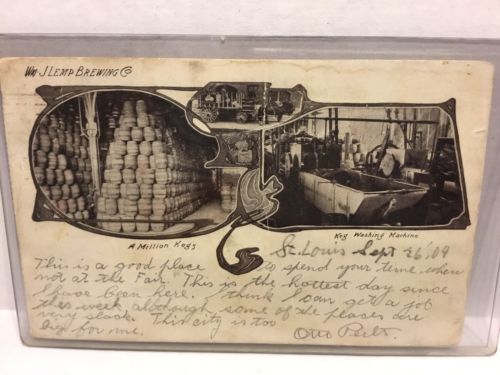 Wm J LEMP BREWING Co
A Million Kegs
Keg Washing Machine
St. Louis Sept 26 '04
This is a good place to spend your time when
not at the Fair. This is the hottest day since
I have been here. I think I can get a job
this week although some of the places are
very slack. This city is too
big for me. Otto